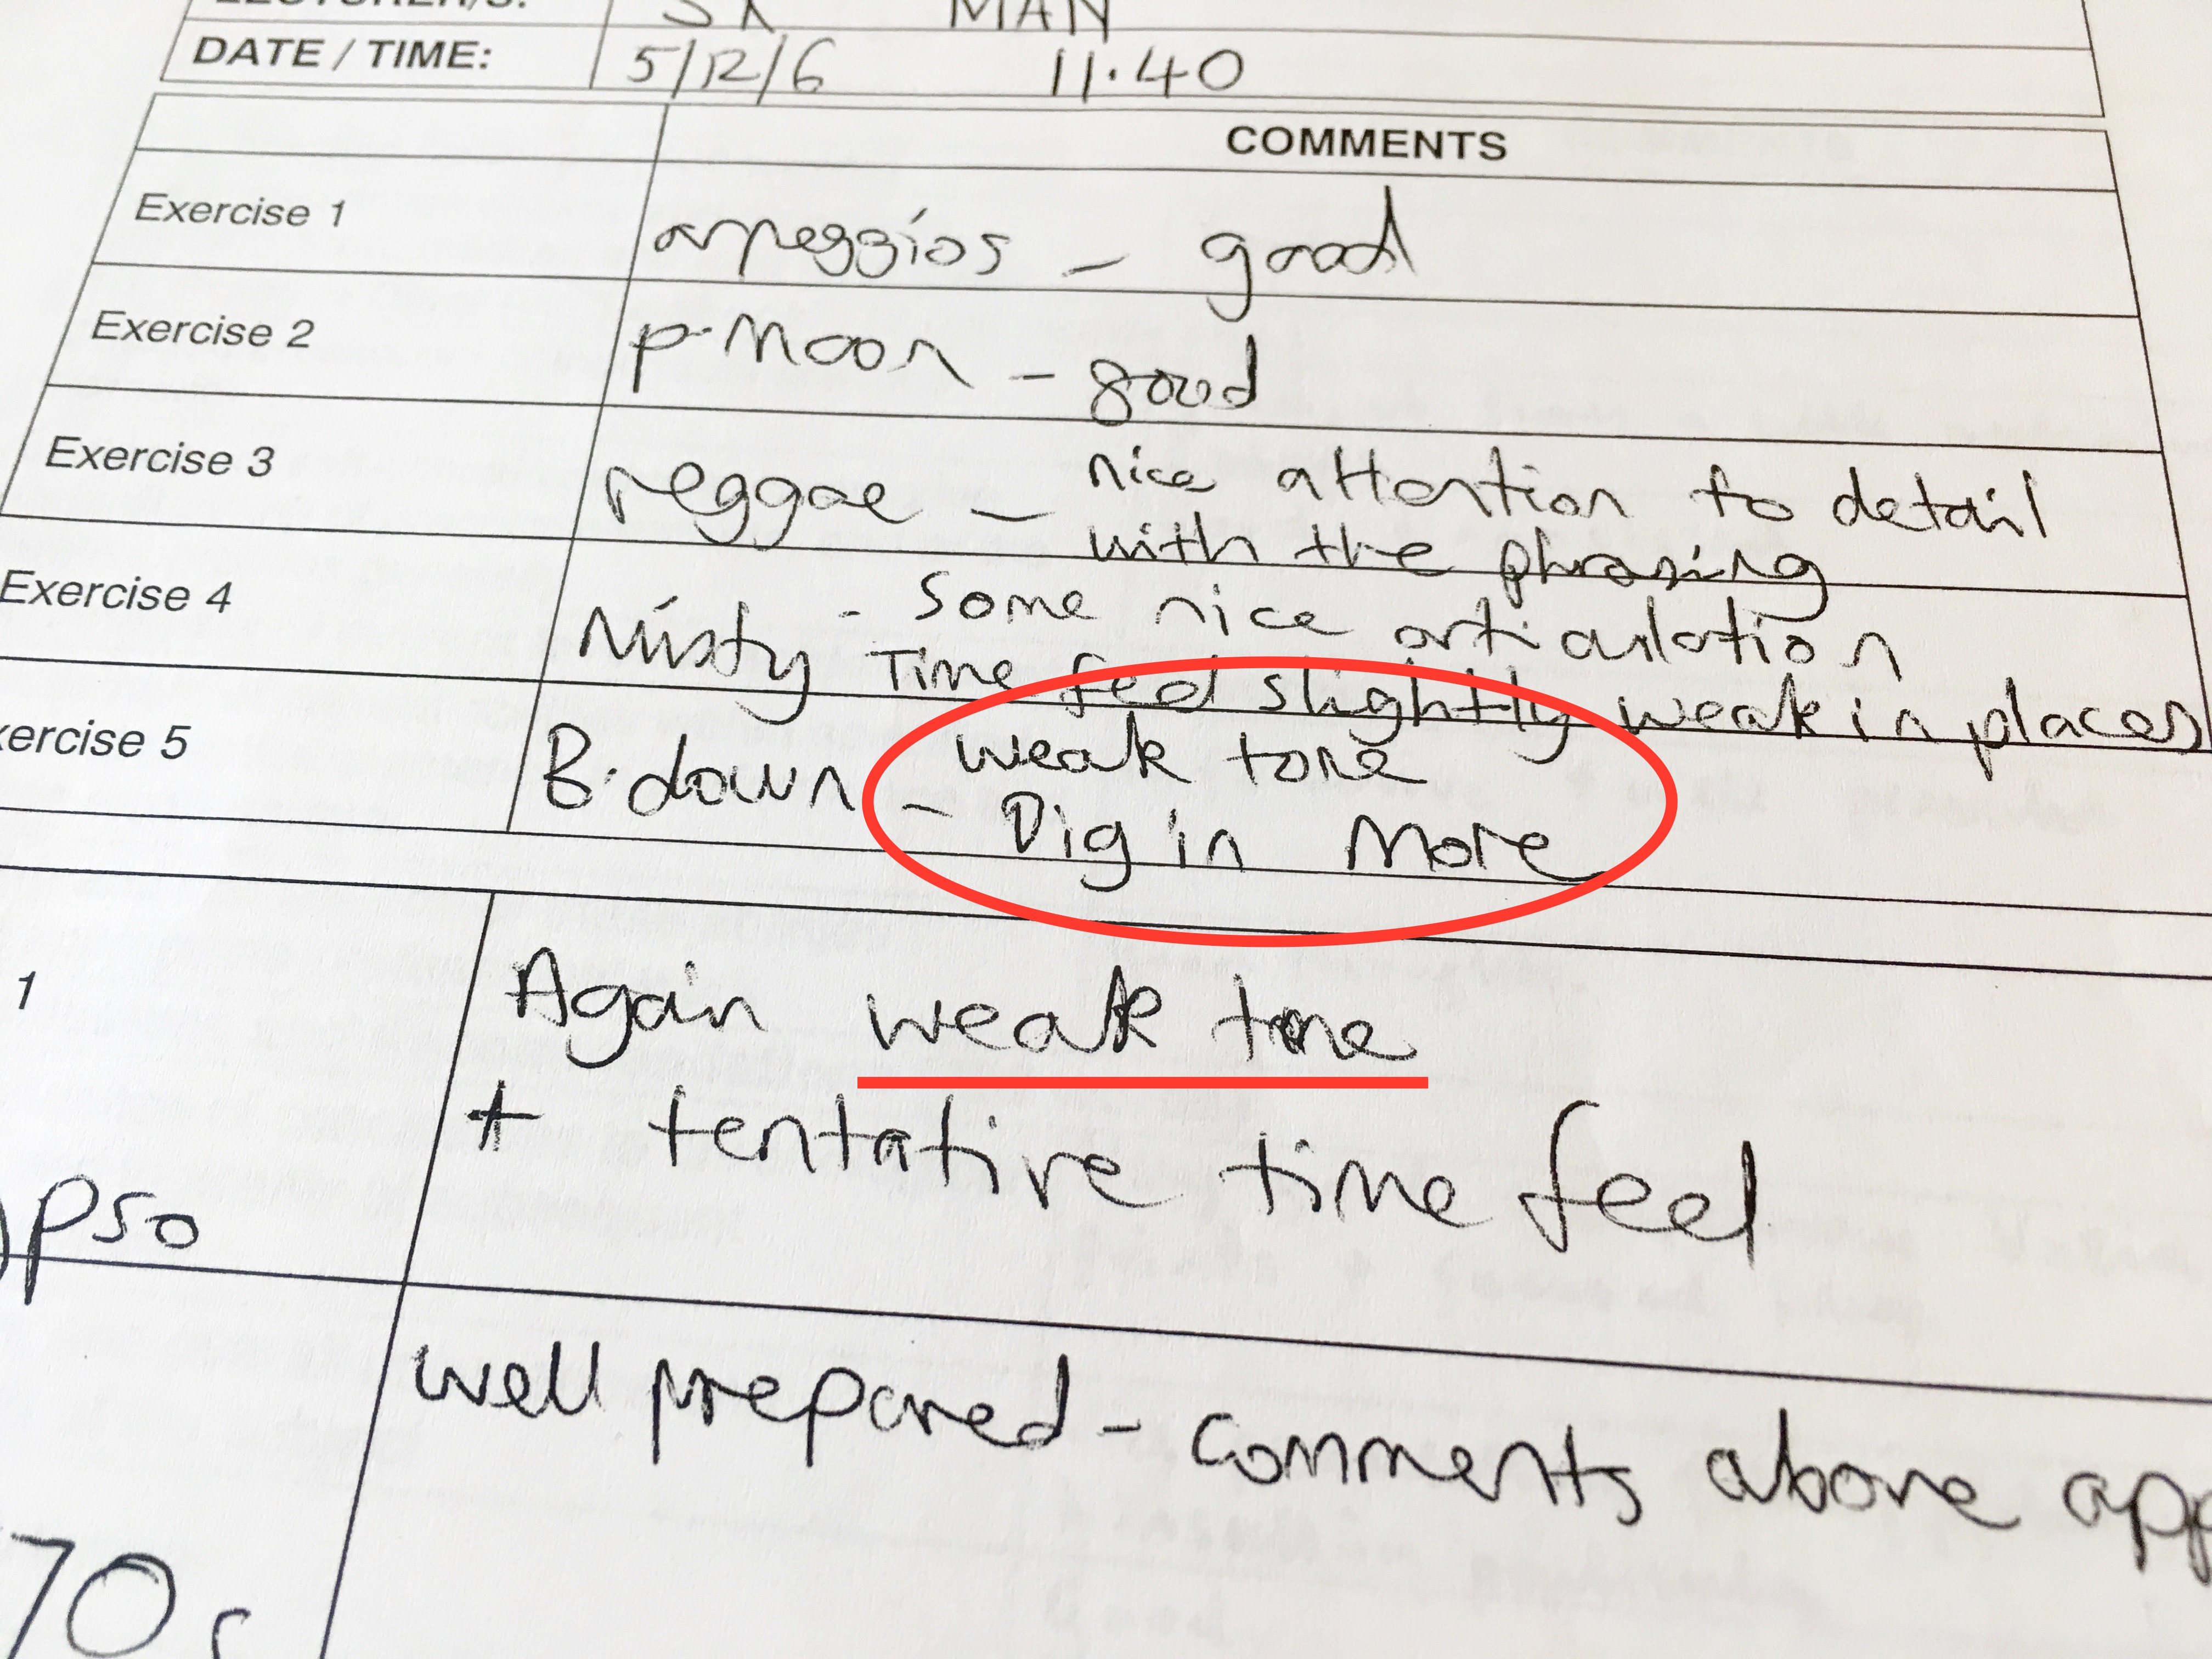 DATE / TIME: 5/12/6 11.40
COMMENTS
Exercise 1 arpeggios - good
Exercise 2 P. Moon - good
Exercise 3 reggae - nice attention to detail
with the phrasing
Exercise 4 Misty - some nice articulation
Time feel slightly weak in places
xercise 5 B.down - weak tone
Dig in More
1 Again weak tone
+ tentative time feel
pso
well prepared - comments above app
70s